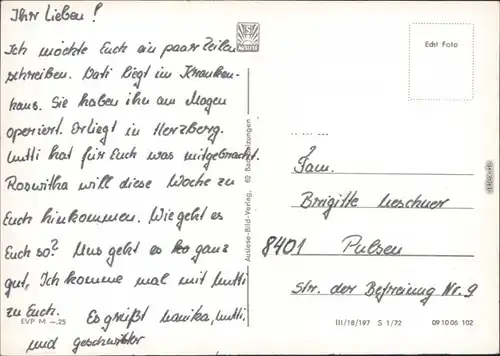 Ihr Lieben!
Ich möchte Euch ein paar Zeilen
schreiben. Vati liegt im Kranken-
haus. Sie haben ihn am Magen
operiert. Er liegt in Herzberg.
Mutti hat für Euch was mitgebracht.
Roswitha will diese Woche zu
Euch hinkommen. Wie geht es
Euch so? Uns geht es so ganz
gut, Ich komme mal mit Mutti
zu Euch. Es grüßt Manika, Mutti,
und geschwister
EVP M –.25
Auslese-Bild-Verlag, 62 Bad Salzungen
Echt Foto
Fam.
Brigitte Leschner
8401 Pulsen
Str. der Befreiung Nr. 9
III/18/197 S 1/72 09 10 06 102